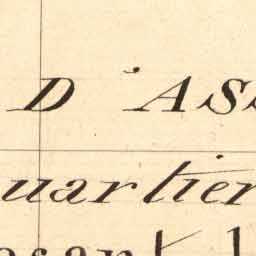 D'ASS
uartier